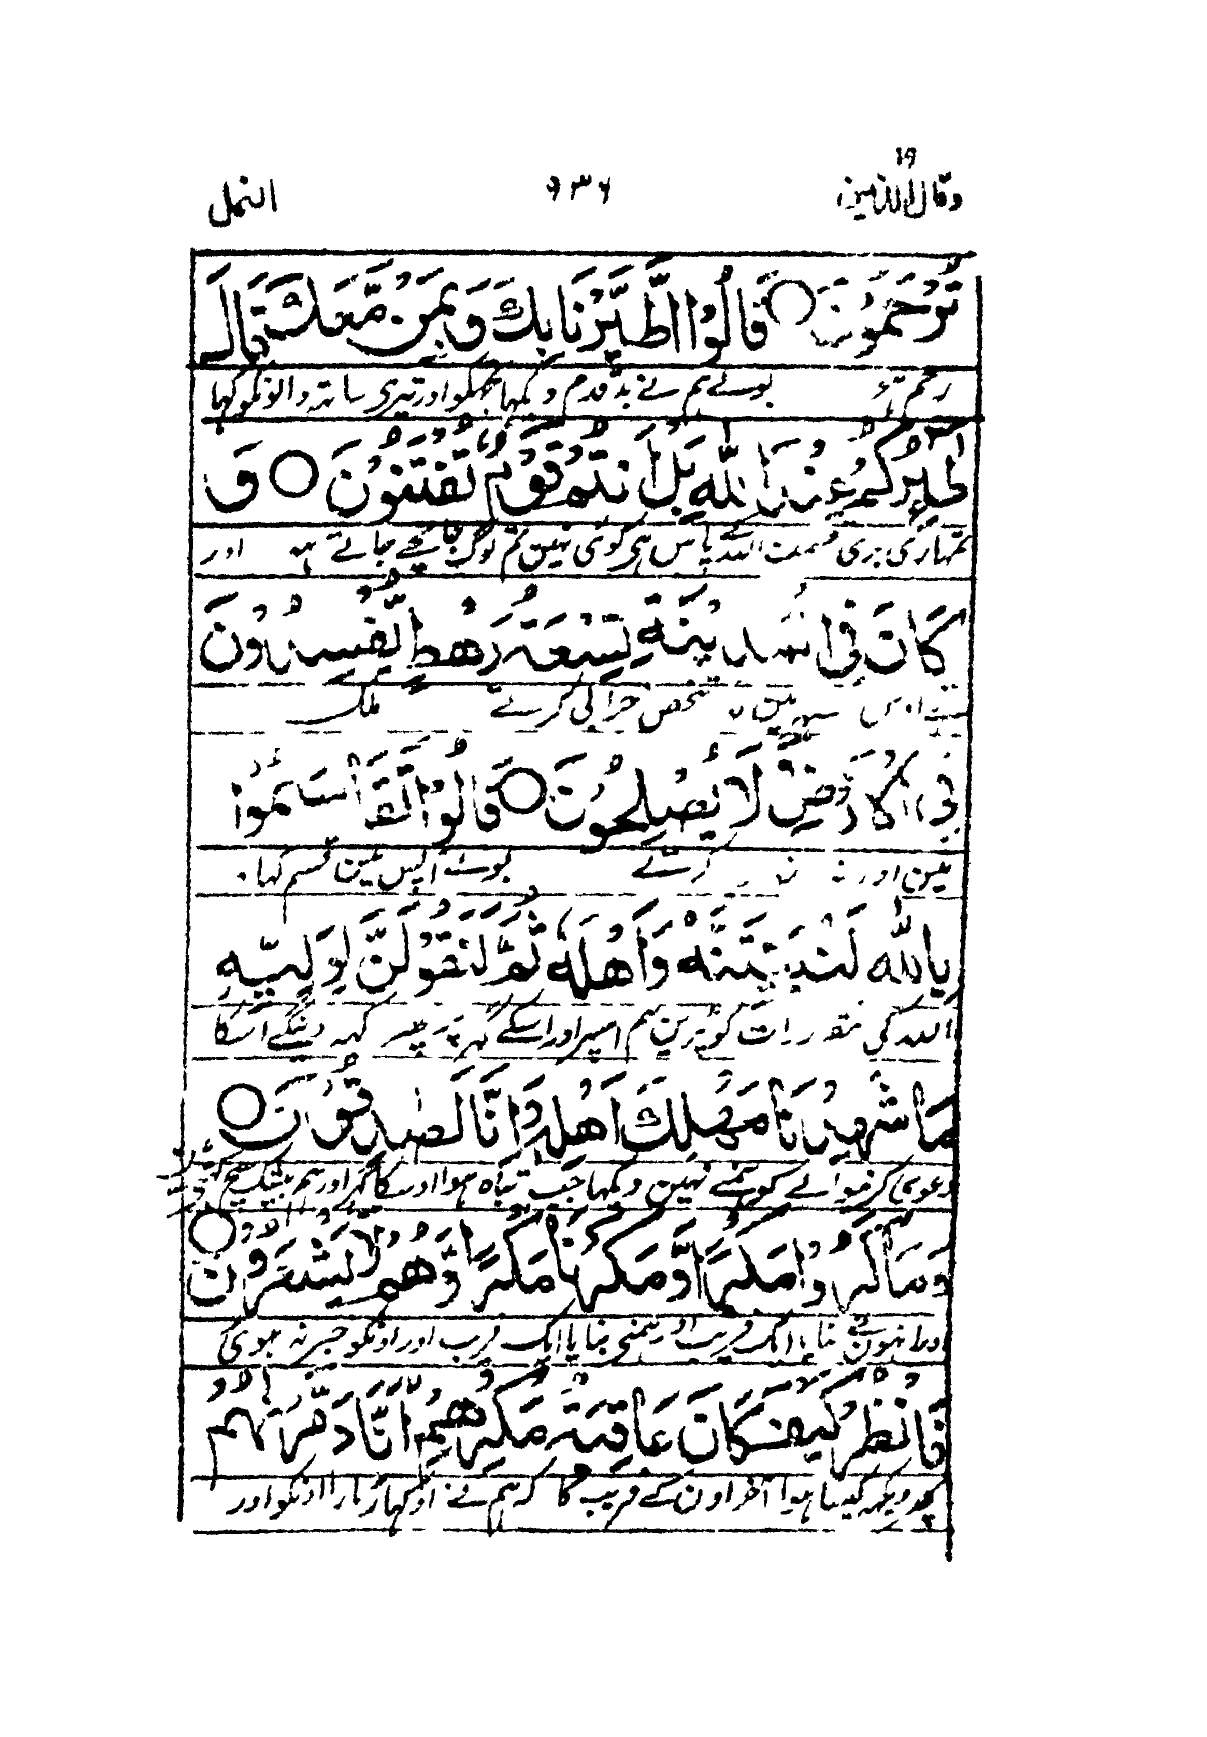 ١٩
وقال الذین ٦٣٦ النمل
تُرْحَمُوْنَ ○ قَالُوا اطَّيَّرْنَا بِكَ وَبِمَنْ مَّعَكَ قَالَ
رحم ہو بولے ہم نے بد قدم دیکھا تجھکو اور تیری ساتھ والونکو کہا
طٰٓئِرُكُمْ عِنْدَ اللّٰهِ بَلْ اَنْتُمْ قَوْمٌ تُفْتَنُوْنَ ○ وَ
تمہاری بری قسمت اللہ کے پاس ہی کوئی نہین تم لوگ جانچے جاتے ہو اور
كَانَ فِى الْمَدِيْنَةِ تِسْعَةُ رَهْطٍ يُّفْسِدُوْنَ
تھے اوس شہر مین شخص خرابی کرتے ملک
فِى الْاَرْضِ وَلَا يُصْلِحُوْنَ ○ قَالُوْا تَقَاسَمُوْا
مین اور نہ کرتے بولے آپس مین قسم کہا
بِاللّٰهِ لَنُبَيِّتَنَّهٗ وَاَهْلَهٗ ثُمَّ لَنَقُوْلَنَّ لِوَلِيِّهٖ
اللہ کی مقرر رات کو پڑین ہم اسپر اور اسکے گہر پر پہر کہہ دینگے اسکا
مَا شَهِدْنَا مَهْلِكَ اَهْلِهٖ وَاِنَّا لَصٰدِقُوْنَ ○
دعوی کرنیوالے کو ہمنے نہین دیکہا جب تباہ ہوا اوسکا گہر اور ہم بیشک سچ
وَمَكَرُوْا مَكْرًا وَّمَكَرْنَا مَكْرًا وَّهُمْ لَا يَشْعُرُوْنَ ○
اور انہون نے بنایا ایک فریب اور ہمنے بنایا ایک فریب اور اونکو خبر نہ ہوی
فَانْظُرْ كَيْفَ كَانَ عَاقِبَةُ مَكْرِهِمْ اَنَّا دَمَّرْنٰهُمْ
پہر دیکہہ کیسا ہوا آخر اون کے فریب کا کہ ہم نے اوکہاڑ مارا اونکو اور